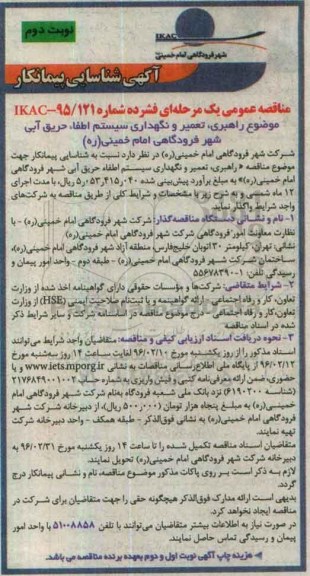 نوبت دوم
IKAC
شهر فرودگاهی امام خمینی(ره)
آگهی شناسایی پیمانکار
مناقصه عمومی یک مرحله‌ای فشرده شماره ۹۵/۱۲۱–IKAC
موضوع راهبری، تعمیر و نگهداری سیستم اطفاء حریق آبی
شهر فرودگاهی امام خمینی(ره)
شرکت شهر فرودگاهی امام خمینی(ره) در نظر دارد نسبت به شناسایی پیمانکار جهت
موضوع مناقصه « راهبری، تعمیر و نگهداری سیستم اطفاء حریق آبی شهر فرودگاهی
امام خمینی(ره)» به مبلغ برآورد پیش‌بینی شده ۵٫۰۵۳٫۴۱۵٫۰۴۰ ریال، با مدت اجرای
۱۲ ماه شمسی و به شرح زیر با مشخصات و شرایط کلی از طریق مناقصه به شرکت‌های
واجد شرایط واگذار نماید.
۱- نام و نشانی دستگاه مناقصه‌گذار: شرکت شهر فرودگاهی امام خمینی(ره) - با
نظارت معاونت امور فرودگاهی شرکت شهر فرودگاهی امام خمینی(ره)
نشانی: تهران- کیلومتر ۳۰ اتوبان خلیج‌فارس، منطقه آزاد شهر فرودگاهی امام خمینی(ره)،
ساختمان شرکت شهر فرودگاهی امام خمینی(ره) - طبقه دوم - واحد امور پیمان و
رسیدگی تلفن: ۱-۵۵۶۷۸۳۹۰
۲- شرایط متقاضی: شرکت‌ها و مؤسسات حقوقی دارای گواهینامه اخذ شده از وزارت
تعاون، کار و رفاه اجتماعی - ارائه گواهینامه و یا ثبت‌نام صلاحیت ایمنی (HSE) از وزارت
تعاون، کار و رفاه اجتماعی - درج موضوع مناقصه در اساسنامه شرکت و سایر شرایط ذکر
شده در اسناد مناقصه
۳- نحوه دریافت اسناد ارزیابی کیفی و مناقصه: متقاضیان واجد شرایط می‌توانند
اسناد مذکور را از روز یکشنبه مورخ ۹۶/۰۲/۱۰ لغایت ساعت ۱۴ روز سه‌شنبه مورخ
۹۶/۰۲/۱۲ از پایگاه ملی اطلاع‌رسانی مناقصات به نشانی www.iets.mporg.ir و یا
حضوری، ضمن ارائه معرفی‌نامه کتبی و فیش واریزی به شماره حساب ۲۱۷۶۸۴۹۰۰۱۰۰۲
(شناسه ۶۱۹۰۲۰۰) نزد بانک ملی شعبه فرودگاه به‌نام شرکت شهر فرودگاهی امام
خمینی(ره) به مبلغ پنجاه هزار تومان (۵۰۰٫۰۰۰ ریال)، از دبیرخانه شرکت شهر
فرودگاهی امام خمینی(ره) به نشانی فوق‌الذکر - طبقه همکف - واحد دبیرخانه شرکت
تهیه نمایند.
متقاضیان اسناد مناقصه تکمیل شده را تا ساعت ۱۴ روز یکشنبه مورخ ۹۶/۰۲/۳۱ به
دبیرخانه شرکت شهر فرودگاهی امام خمینی(ره) تحویل نمایند.
لازم به ذکر است بر روی پاکات مذکور موضوع مناقصه، نام و نشانی پیمانکار درج
گردد.
بدیهی است ارائه مدارک فوق‌الذکر هیچگونه حقی را جهت متقاضیان برای شرکت در
مناقصه ایجاد نخواهد کرد.
در صورت نیاز به اطلاعات بیشتر متقاضیان می‌توانند با تلفن ۵۱۰۰۸۸۵۸ با واحد امور
پیمان و رسیدگی تماس حاصل نمایند.
هزینه چاپ آگهی نوبت اول و دوم بعهده برنده مناقصه می‌باشد.